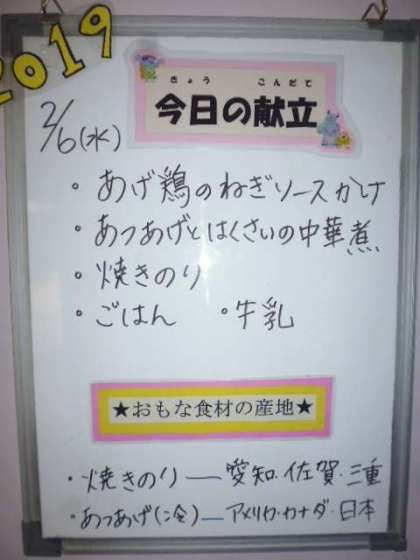 2019
2/6(水)
きょう こんだて
今日の献立
・あげ鶏のねぎソースかけ
・あつあげとはくさいの中華煮
・焼きのり
・ごはん ・牛乳
★おもな食材の産地★
・焼きのり―愛知・佐賀・三重
・あつあげ(冷)―アメリカ・カナダ・日本